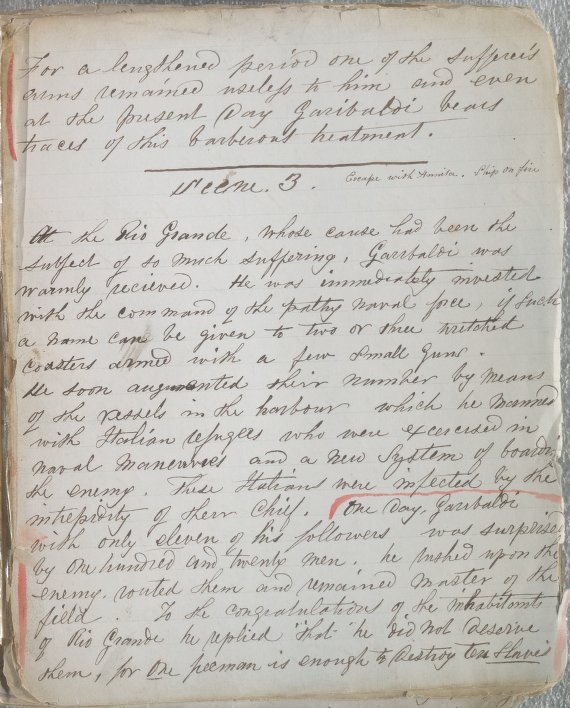 For a lengthened period one of the sufferer's
arms remained useless to him and even
at the present Day Garibaldi bears
traces of this barberous treatment.
Scene. 3. Escape with Annita. Ship on fire
At the Rio Grande, whose cause had been the
subject of so much suffering, Garibaldi was
warmly recieved. He was immediately invested
with the command of the pathy naval force, if such
a name can be given to two or three wretched
coasters armed with a few small guns.
He soon augmented their number by means
of the vessels in the harbour which he manned
with Italian refugees who were excercised in
naval maneuvres and a new system of boardin
the enemy. These Italians were infected by the
intrepidity of their Chief. One day, Garibaldi
with only eleven of his followers was surprise
by one hundred and twenty men, he rushed upon the
enemy. routed them and remained master of the
field. To the congratulations of the inhabitants
of Rio Grande he replied "that" he did not deserve
them, for one freeman is enough to Destroy ten Slaves